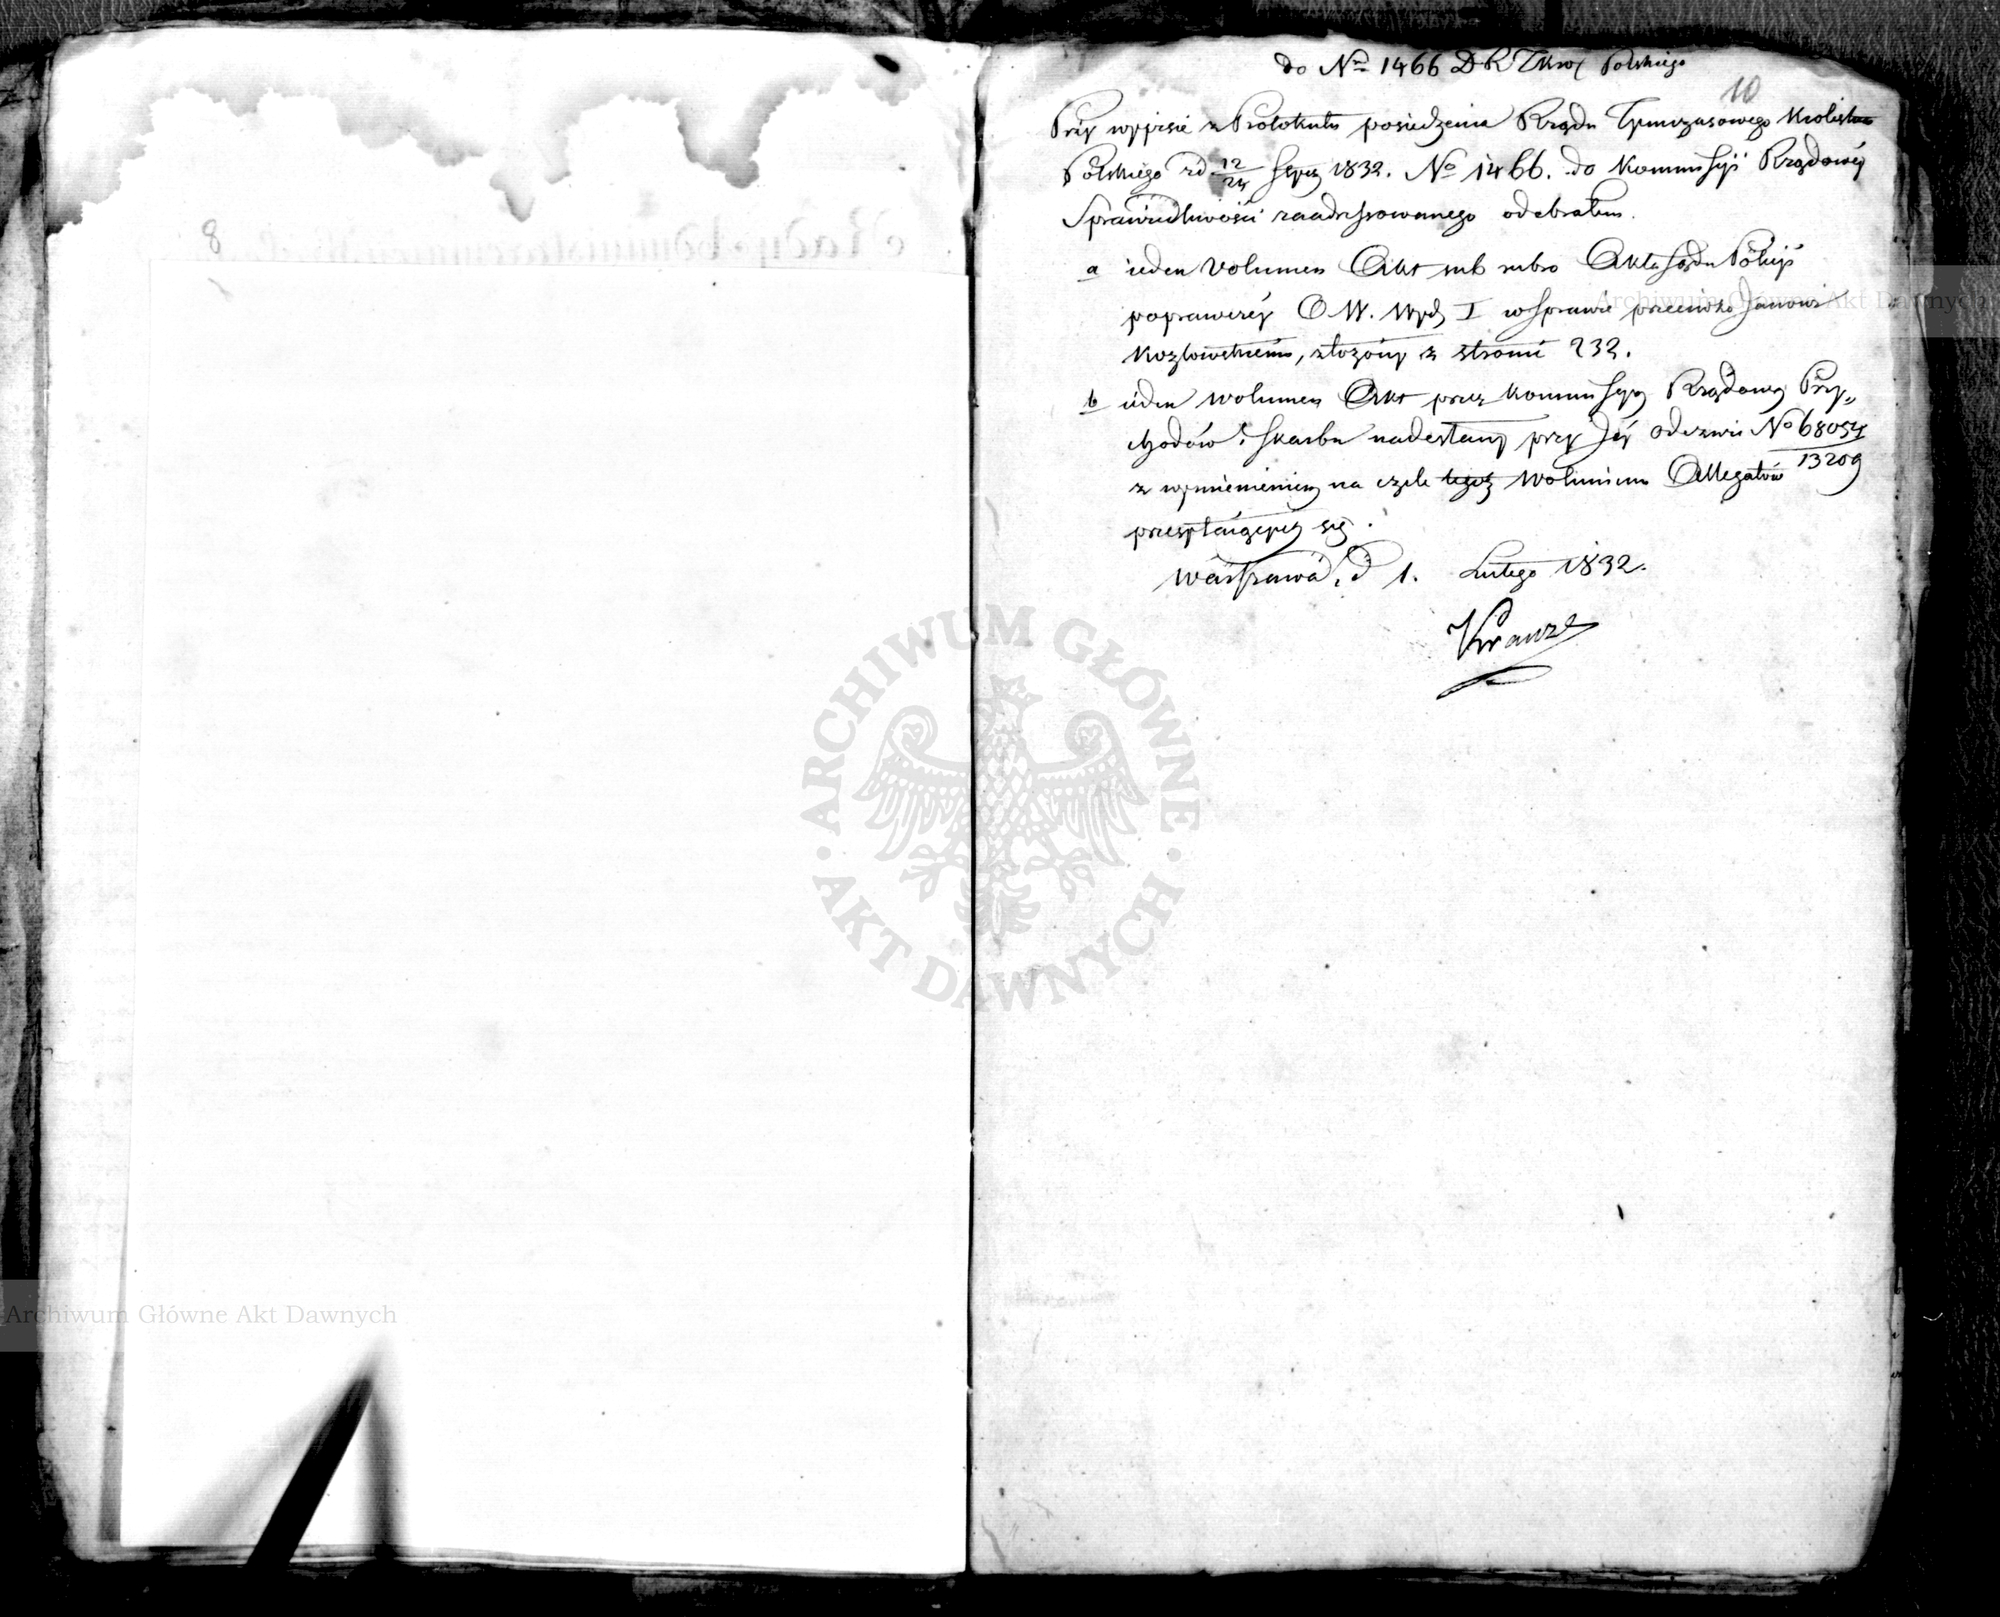 do No 1466 D R T Kro. Polskiego
10
Przy wypisie z Protokułu posiedzenia Rządu Tymczasowego Krolestwa
Polskiego z d 12/24 Stycz 1832. No 1466. do Kommissyi Rządowéy
Sprawiedliwości zaadressowanego odebrałem.
a ieden Volumen Akt sub rubro Akta Sądu Policyi
poprawczéy O. W. Wydz I w sprawie przeciwko Janowi
Kozłowskiemu, złożony z stronic 232.
b ieden Wolumen Akt przez Kommissyą Rządową Przy„
chodów i Skarbu nadesłany przy Jéy odezwie No 68054/13209
z wymienieniem na czele tegoż Woluminu Allegatów
Warszawa, d 1. Lutego 1832.
Krauze
8
ARCHIWUM GŁÓWNE
AKT DAWNYCH
Archiwum Główne Akt Dawnych
Archiwum Główne Akt Dawnych